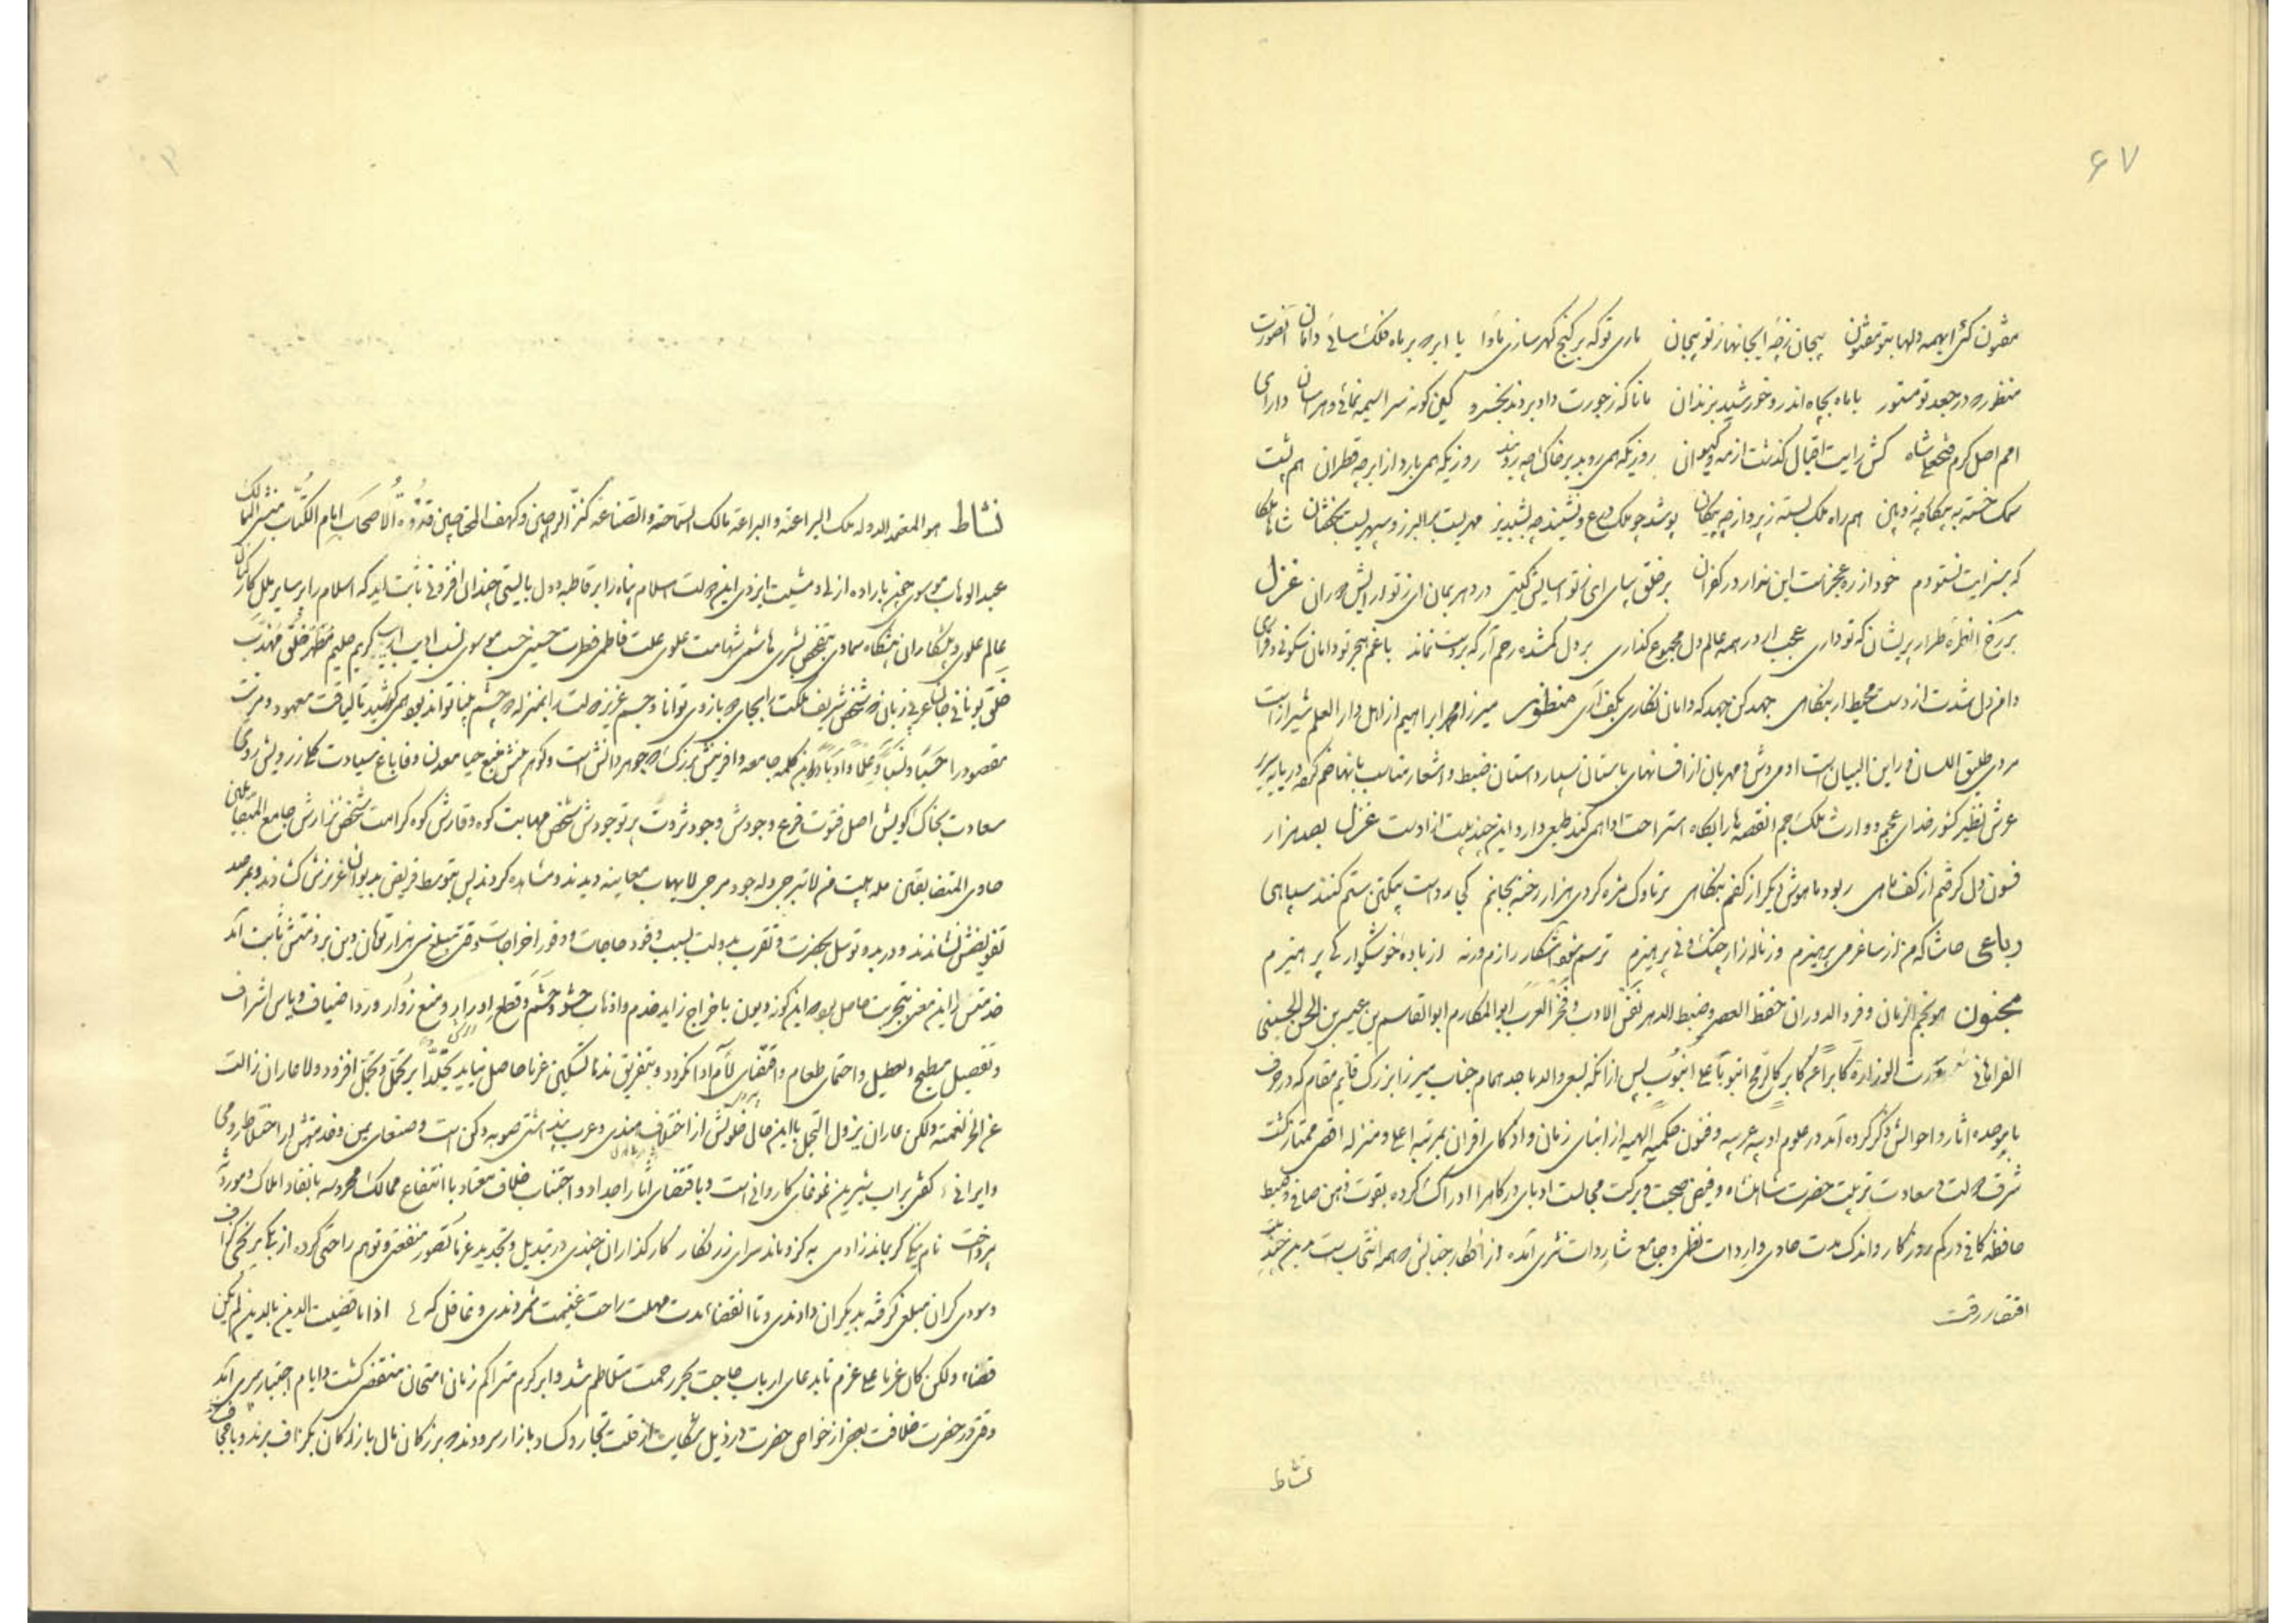 ۶۷
مفتون کنی ایهمه دلها بتو مفتون پیچان زچه ایجانها ز تو پیچان ماری تو که بر گنج گهر سازی ماوا یا ابر که بر ماه فلک سائی دامان
منظور که در جعد تو مستور یا ماه بچاه اندر و خورشید بزندان مانا که ز جورت داد بردند بخسرو کاین گونه سراسیمه نمائی و هراسان دارای
امم اصل کرم فتحعلی شاه کش رایت اقبال گذشت از مه و کیوان روزیکه همی روید بر خاک روزیکه همی بارد از ابر چه قطران هم پشت
سمک خسته به پیکان چه زوبین هم راه ملک بسته ز پرواز چه پیکان پوشد چو ملک درع و نشیند چه بشبدیز مهریست بر البرز و سپهریست شاها ملکا
که بسزایت نستودم خود از ره عجز است این نوار در کفران بر خلق سپاس ای ز تو آسایش گیتی در دهر بمان ای ز تو آرایش دوران غزل
بر رخ آن طره طرار پریشان که تو داری عجب ار در همه عالم دل مجموع گذاری بر دل گمشده رحم آر که بر دست نماند با غم هجر تو دامان سکونی و قراری
دامن دل شدت از دست محیط ار بنگاهی جهد کن جهد که دامان نگاری بکف آری منظور میرزا محمد ابراهیم از اهل دار العلم شیراز است
مردی طلیق اللسان و راین البیان است از افسانهای باستان بسیار داستان ضبط و اشعار مناسب بانها ضم کرده در پایه سریر
عرش نظیر کشور خدای عجم و وارث ملک جم استراحت ادا همی کند طبعی دارد این چند بیت از اوست غزل بصد هزار
فسون دل گرفتم از کف ماهی ربود ما هوش دیگر از کفم بنگاهی ز ناوک مژه کردی هزار رخنه بجانم کی رواست بیکتن ستم کنند سپاهی
رباعی حاشا که من از ساغر می پرهیزم وز ناله زار چنگ و نی پرهیزم ترسم شود آشکار رازم ورنه از باده خوشگوار کی پرهیزم
مجنون هو نجم الزمان و فرد الدوران حفظ العصر و ضبط الدهر نفس الادب و فخر العرب ابو المکارم ابو القاسم بن عیسی بن الحسن الحسینی
الفراهانی الوزارة کابرا عم کابر کالرمح انبوبا علی انبوب پس از آنکه بسعی والد ماجد همام جناب میرزا بزرگ قایم مقام که در حرف
با موحده آثار و احوالش ذکر کرده آمد در علوم ادبیه عربیه و فنون حکمیه الهیه از ابنای زمان و اذکیای اقران بمرتبه اعلی و منزله اقصی ممتاز گشت
شرف دولت و سعادت تربیت حضرت شاهنشاه و فیض صحبت و برکت مجالست ادبای درگاه را ادراک کرده بقوت ذهن صافی و ضبط
حافظه کافی در کم روزگار و اندک مدت حاوی واردات نظمی و جامع شاردات نثری آمده و از اشعار جنابش که همه انتخاب است بدین چند
اقتصار رفت
نشاط
نشاط هو المعتمد الدوله ملک البراعة والیراعة مالک السماحة والصناعة کنز الراجین و کهف المحتاجین قدوة الاصحاب امام الکتاب
عبد الوهاب موسوی چون باراده ازلی و مشیت ایزدی این دولت اسلام پناه را بر قاطبه دول بالیستی چندان افزونی ثابت آید که اسلام را بر سایر ملل
عالم علوی و پیشکاران پیشگاه سماوی بتفحص بشری هاشمی شهامت علوی علت فاطمی فطرت حسینی حسب موسوی نسب ادیب اریب کریم حلیم مطهر خلق مهذب
خلق یونانی عربی زبان که شخص شریف ملکت را بجای بازوی توانا و جسم عزیز دولت را بمنزله چشم بینا تواند بود همی کوشید تا لیاقت معهود و مرتبت
مقصود را حسبا و نسبا و علما و ادبا در این کلمه جامعه و آفرینش بزرگ که جوهر دانش است و گوهر بینش منبع حیا معدن وفا باغ سیادت گل از رویش روی
سعادت بخاک کویش اصل فتوت فرع وجودش وجود ثروت پرتو جودش شخص مهابت کوه وقارش کوه کرامت شخص نزارش جامع المتقابلین
حاوی المتضایقین له هیبة من لا تبرجی و له جود مرجی لا یهاب معاینه دیدند و مشاهده کردند پس بتوسط فریقی بدیوان عزیزش کشاندند و بر صدر
تفویضش نشاندند و در بدو توسل بحضرت و تقرب بدولت بسبب وفور حاجات و وفور اخراجات وقتی مبلغ سی هزار تومان دین بر ذمتش ثابت آمد
خدمتش را این معنی بتجربت حاصل بود که این گونه دیون باخراج زاید خدم و اذهاب حشو و حشم و قطع ادرار و منع زوار و رد اضیاف و یاس اشراف
و تفصیل مطبخ و تعطیل و احتمای طعام و اقتفای لئام ادا نگردد و بتفریق ندما تسکین غرما حاصل نیاید تجلدا بر تحمل و تجمل افزود و لا عار ان زالت
عن الحر نعمة ولکن عارا ان یزول التجمل با این حال خلوتش از اختلاف هندی و عرب صوبه دکن است و صنعای یمن و خدمتش از اختلاط رومی
و ایرانی کفش بر آب شیرین غوغای کاروانی است و باقتفای آثار اجداد و اجتناب خلاف معتاد با انتفاع ممالک محروسه بانفاد املاک موروثه
پرداخت نام نیک گر بماند ز آدمی به کزو ماند سرای زرنگار کارگذاران چندی در تبدیل و تجدید غرما تصور منفعتی و توهم راحتی کرده از یک
و سودی گران مبلغی گرفته بدیگران دادندی و تا انقضاء مدت مهلت راحت غنیمت شمردندی و غافل که اذا ما قضیت الدین بالدین لم یکن
قضاء ولکن کان غرما علی غرم تا بدعای ارباب حاجت بحر رحمت متلاطم شد و ابر کرم متراکم زمان امتحان منقضی گشت و ایام اختبار سپری آمد
وقتی در حضرت خلافت بعضی از خواص حضرت در ذیل شکایت از قلت تجار و کساد بازار سرودند که بزرگان مال بازرگان بگزاف برند و